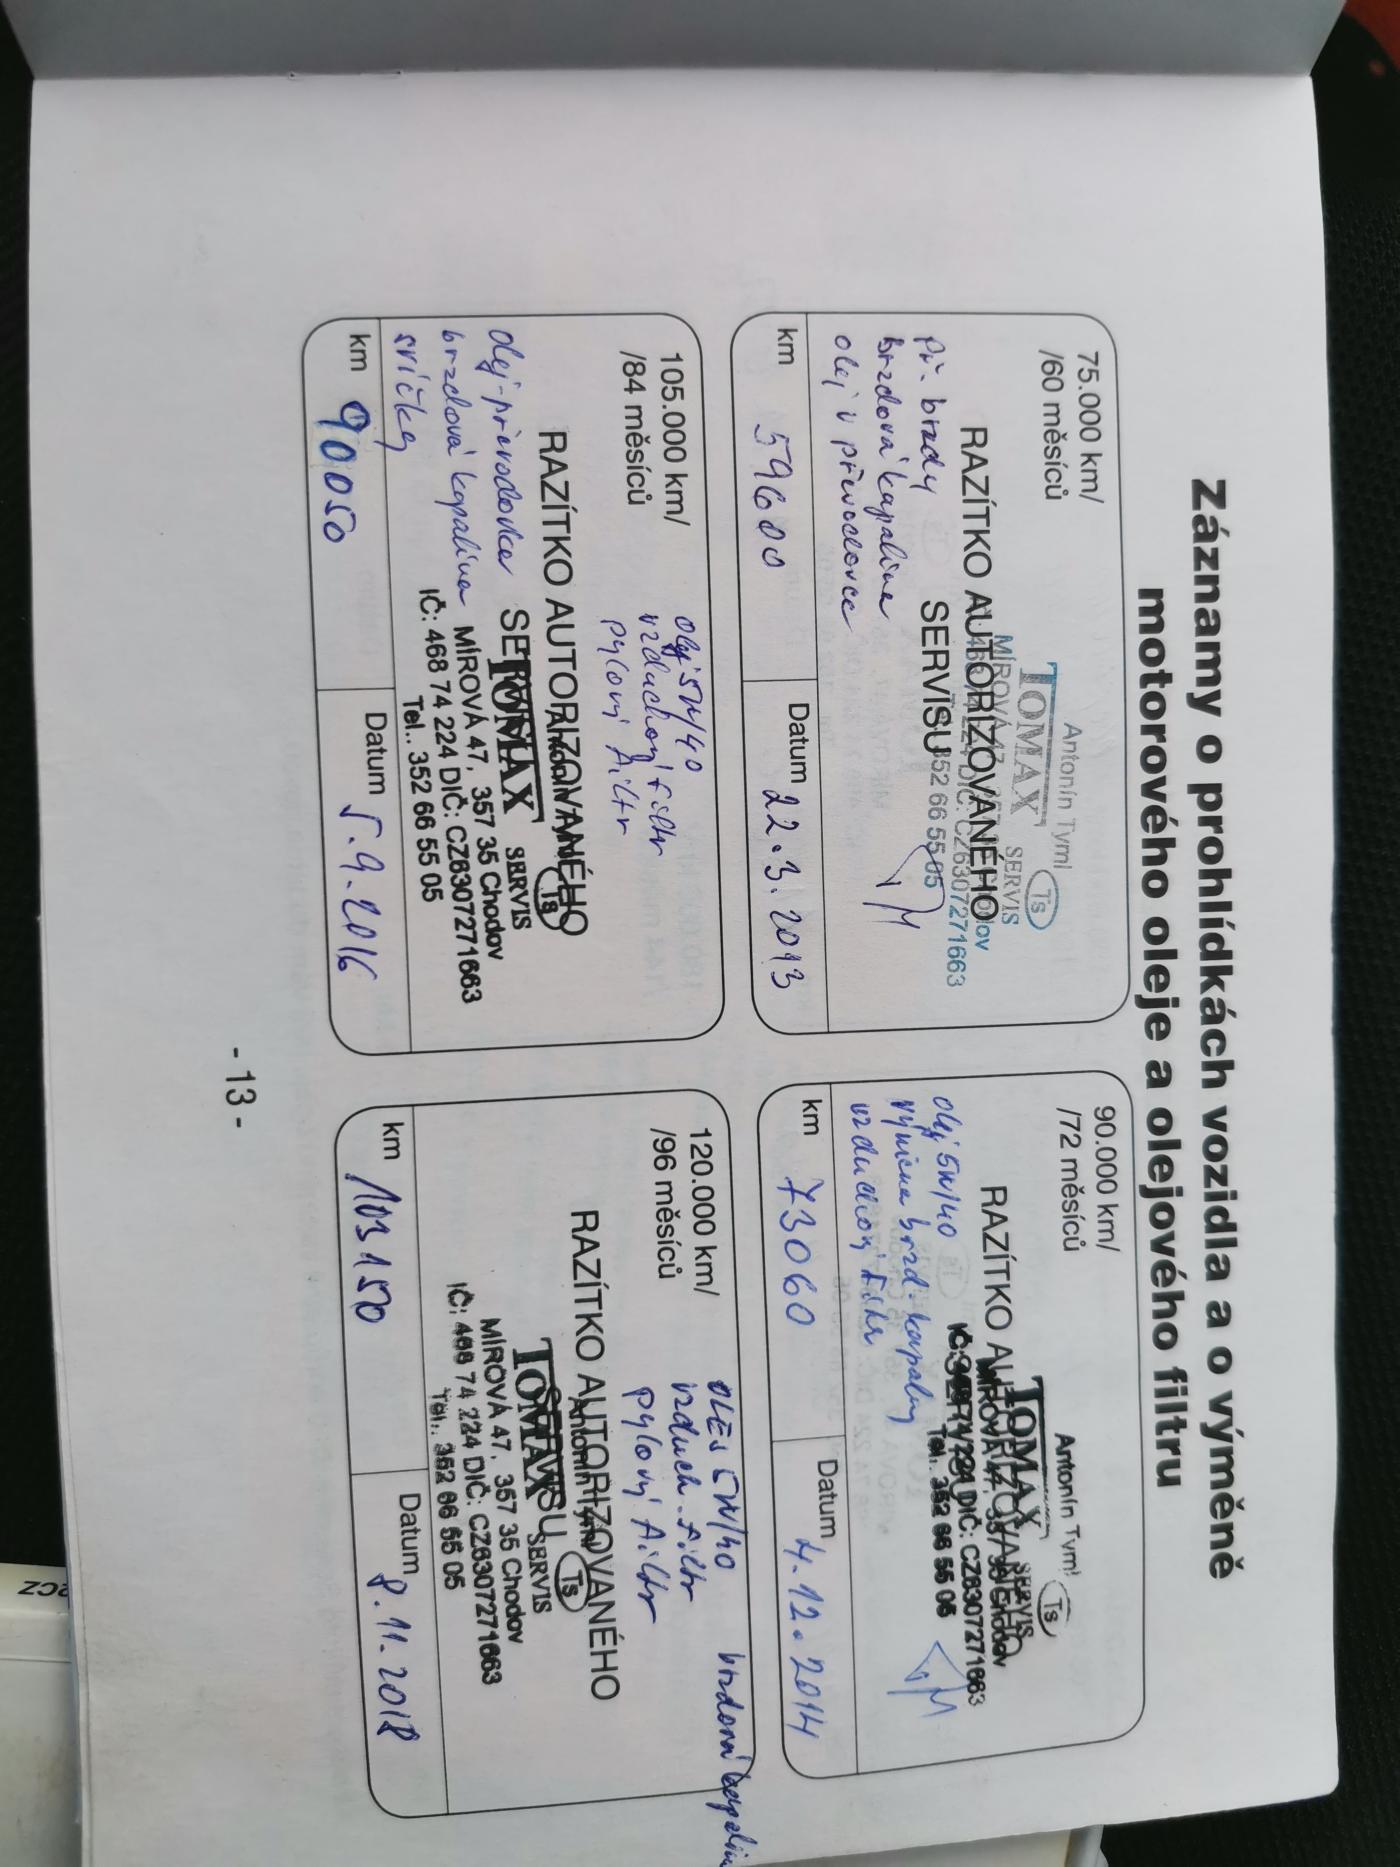 Záznamy o prohlídkách vozidla a o výměně
motorového oleje a olejového filtru
75.000 km/
/60 měsíců
Antonín Tyml Ts
TOMAX SERVIS
MÍROVÁ 47, 357 35 Chodov
RAZÍTKO AUTORIZOVANÉHO
468 74 224 DIČ: CZ6307271663
SERVISU 352 66 55 05
Př. brzdy
brzdová kapalina
olej v převodovce
km 59600
Datum 22.3.2013
90.000 km/
/72 měsíců
Antonín Tyml Ts
TOMAX SERVIS
RAZÍTKO AUTORIZOVANÉHO
MÍROVÁ 47, 357 35 Chodov
IČ: 468 74 224 DIČ: CZ6307271663
SERVISU
Tel.. 352 66 55 05
olej 5W/40
výměna brzd. kapaliny
vzduchový filtr
km 73060
Datum 4.12.2014
105.000 km/
/84 měsíců
olej 5W/40
vzduchový filtr
pylový filtr
RAZÍTKO AUTORIZOVANÉHO
Antonín Tyml Ts
SERVISU
TOMAX SERVIS
olej-převodovka
brzdová kapalina
svíčky
MÍROVÁ 47, 357 35 Chodov
IČ: 468 74 224 DIČ: CZ6307271663
Tel.. 352 66 55 05
km 90050
Datum 5.9.2016
120.000 km/
/96 měsíců
OLEJ 5W/40
vzduch. filtr
pylový filtr
brzdová kapalina
RAZÍTKO AUTORIZOVANÉHO
Antonín Tyml Ts
SERVISU
TOMAX SERVIS
MÍROVÁ 47, 357 35 Chodov
IČ: 468 74 224 DIČ: CZ6307271663
Tel.. 352 66 55 05
km 103150
Datum 8.11.2018
- 13 -